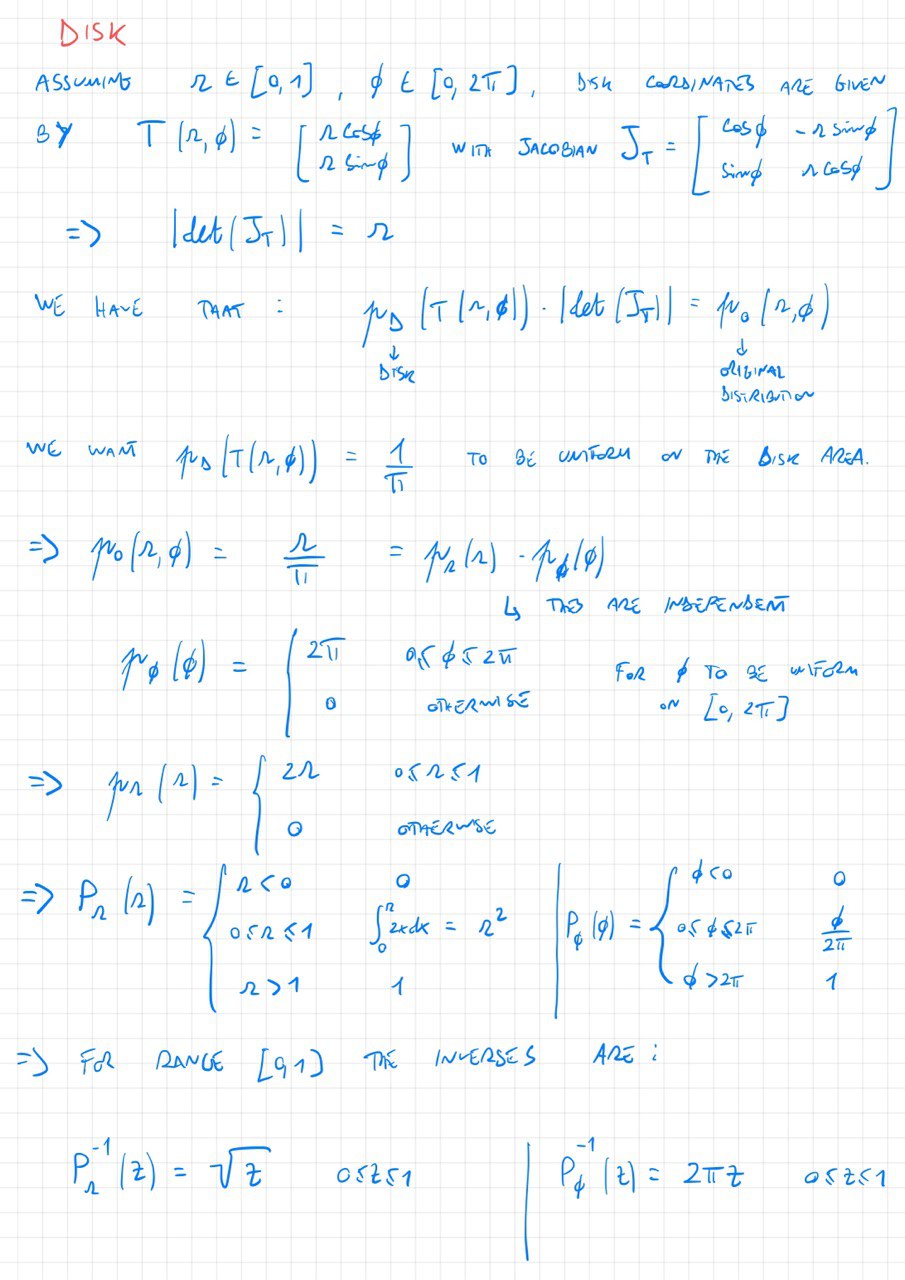 DISK
ASSUMING r ∈ [0,1], ϕ ∈ [0,2π], DISK COORDINATES ARE GIVEN
BY T(r,ϕ) = [r cosϕ; r sinϕ] WITH JACOBIAN J_T = [cosϕ −r sinϕ; sinϕ r cosϕ]
=> |det(J_T)| = r
WE HAVE THAT : p_D(T(r,ϕ)) · |det(J_T)| = p_o(r,ϕ)
↓ DISK ↓ ORIGINAL
DISTRIBUTION
WE WANT p_D(T(r,ϕ)) = 1/π TO BE UNIFORM ON THE DISK AREA.
=> p_o(r,ϕ) = r/π = p_r(r) · p_ϕ(ϕ)
↳ THEY ARE INDEPENDENT
p_ϕ(ϕ) = { 2π 0≤ϕ≤2π FOR ϕ TO BE UNIFORM
0 OTHERWISE ON [0,2π]
=> p_r(r) = { 2r 0≤r≤1
0 OTHERWISE
=> P_r(r) = { r<0 0 | P_ϕ(ϕ) = { ϕ<0 0
0≤r≤1 ∫_0^r 2x dx = r² | 0≤ϕ≤2π ϕ/2π
r>1 1 | ϕ>2π 1
=> FOR RANGE [0,1] THE INVERSES ARE :
P_r^-1(z) = √z 0≤z≤1 | P_ϕ^-1(z) = 2πz 0≤z≤1